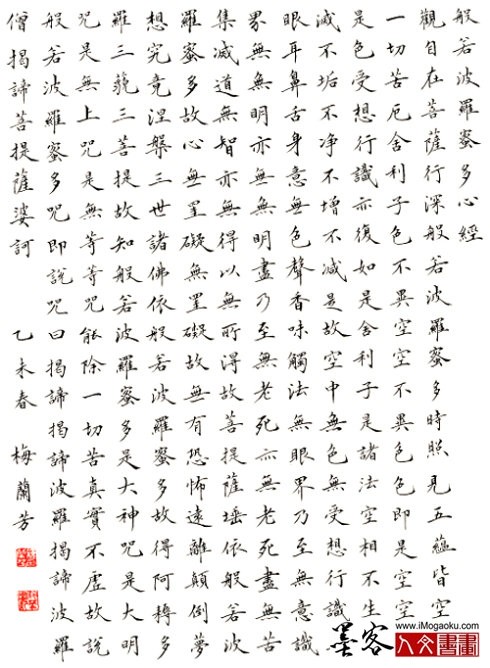 般若波羅蜜多心經
觀自在菩薩行深般若波羅蜜多時照見五蘊皆空
一切苦厄舍利子色不異空空不異色色即是空空
是色受想行識亦復如是舍利子是諸法空相不生
滅不垢不净不增不減是故空中無色無受想行識
眼耳鼻舌身意無色聲香味觸法無眼界乃至無意識
界無無明亦無無明盡乃至無老死亦無老死盡無苦
集滅道無智亦無得以無所得故菩提薩埵依般若波
羅蜜多故心無罣礙無罣礙故無有恐怖遠離顛倒夢
想究竟涅槃三世諸佛依般若波羅蜜多故得阿耨多
羅三藐三菩提故知般若波羅蜜多是大神咒是大明
咒是無上咒是無等等咒能除一切苦真實不虛故說
般若波羅蜜多咒即說咒曰揭諦揭諦波羅揭諦波羅
僧揭諦菩提薩婆訶 乙未春 梅蘭芳
www.iMogaoku.com
墨客 人文書畫